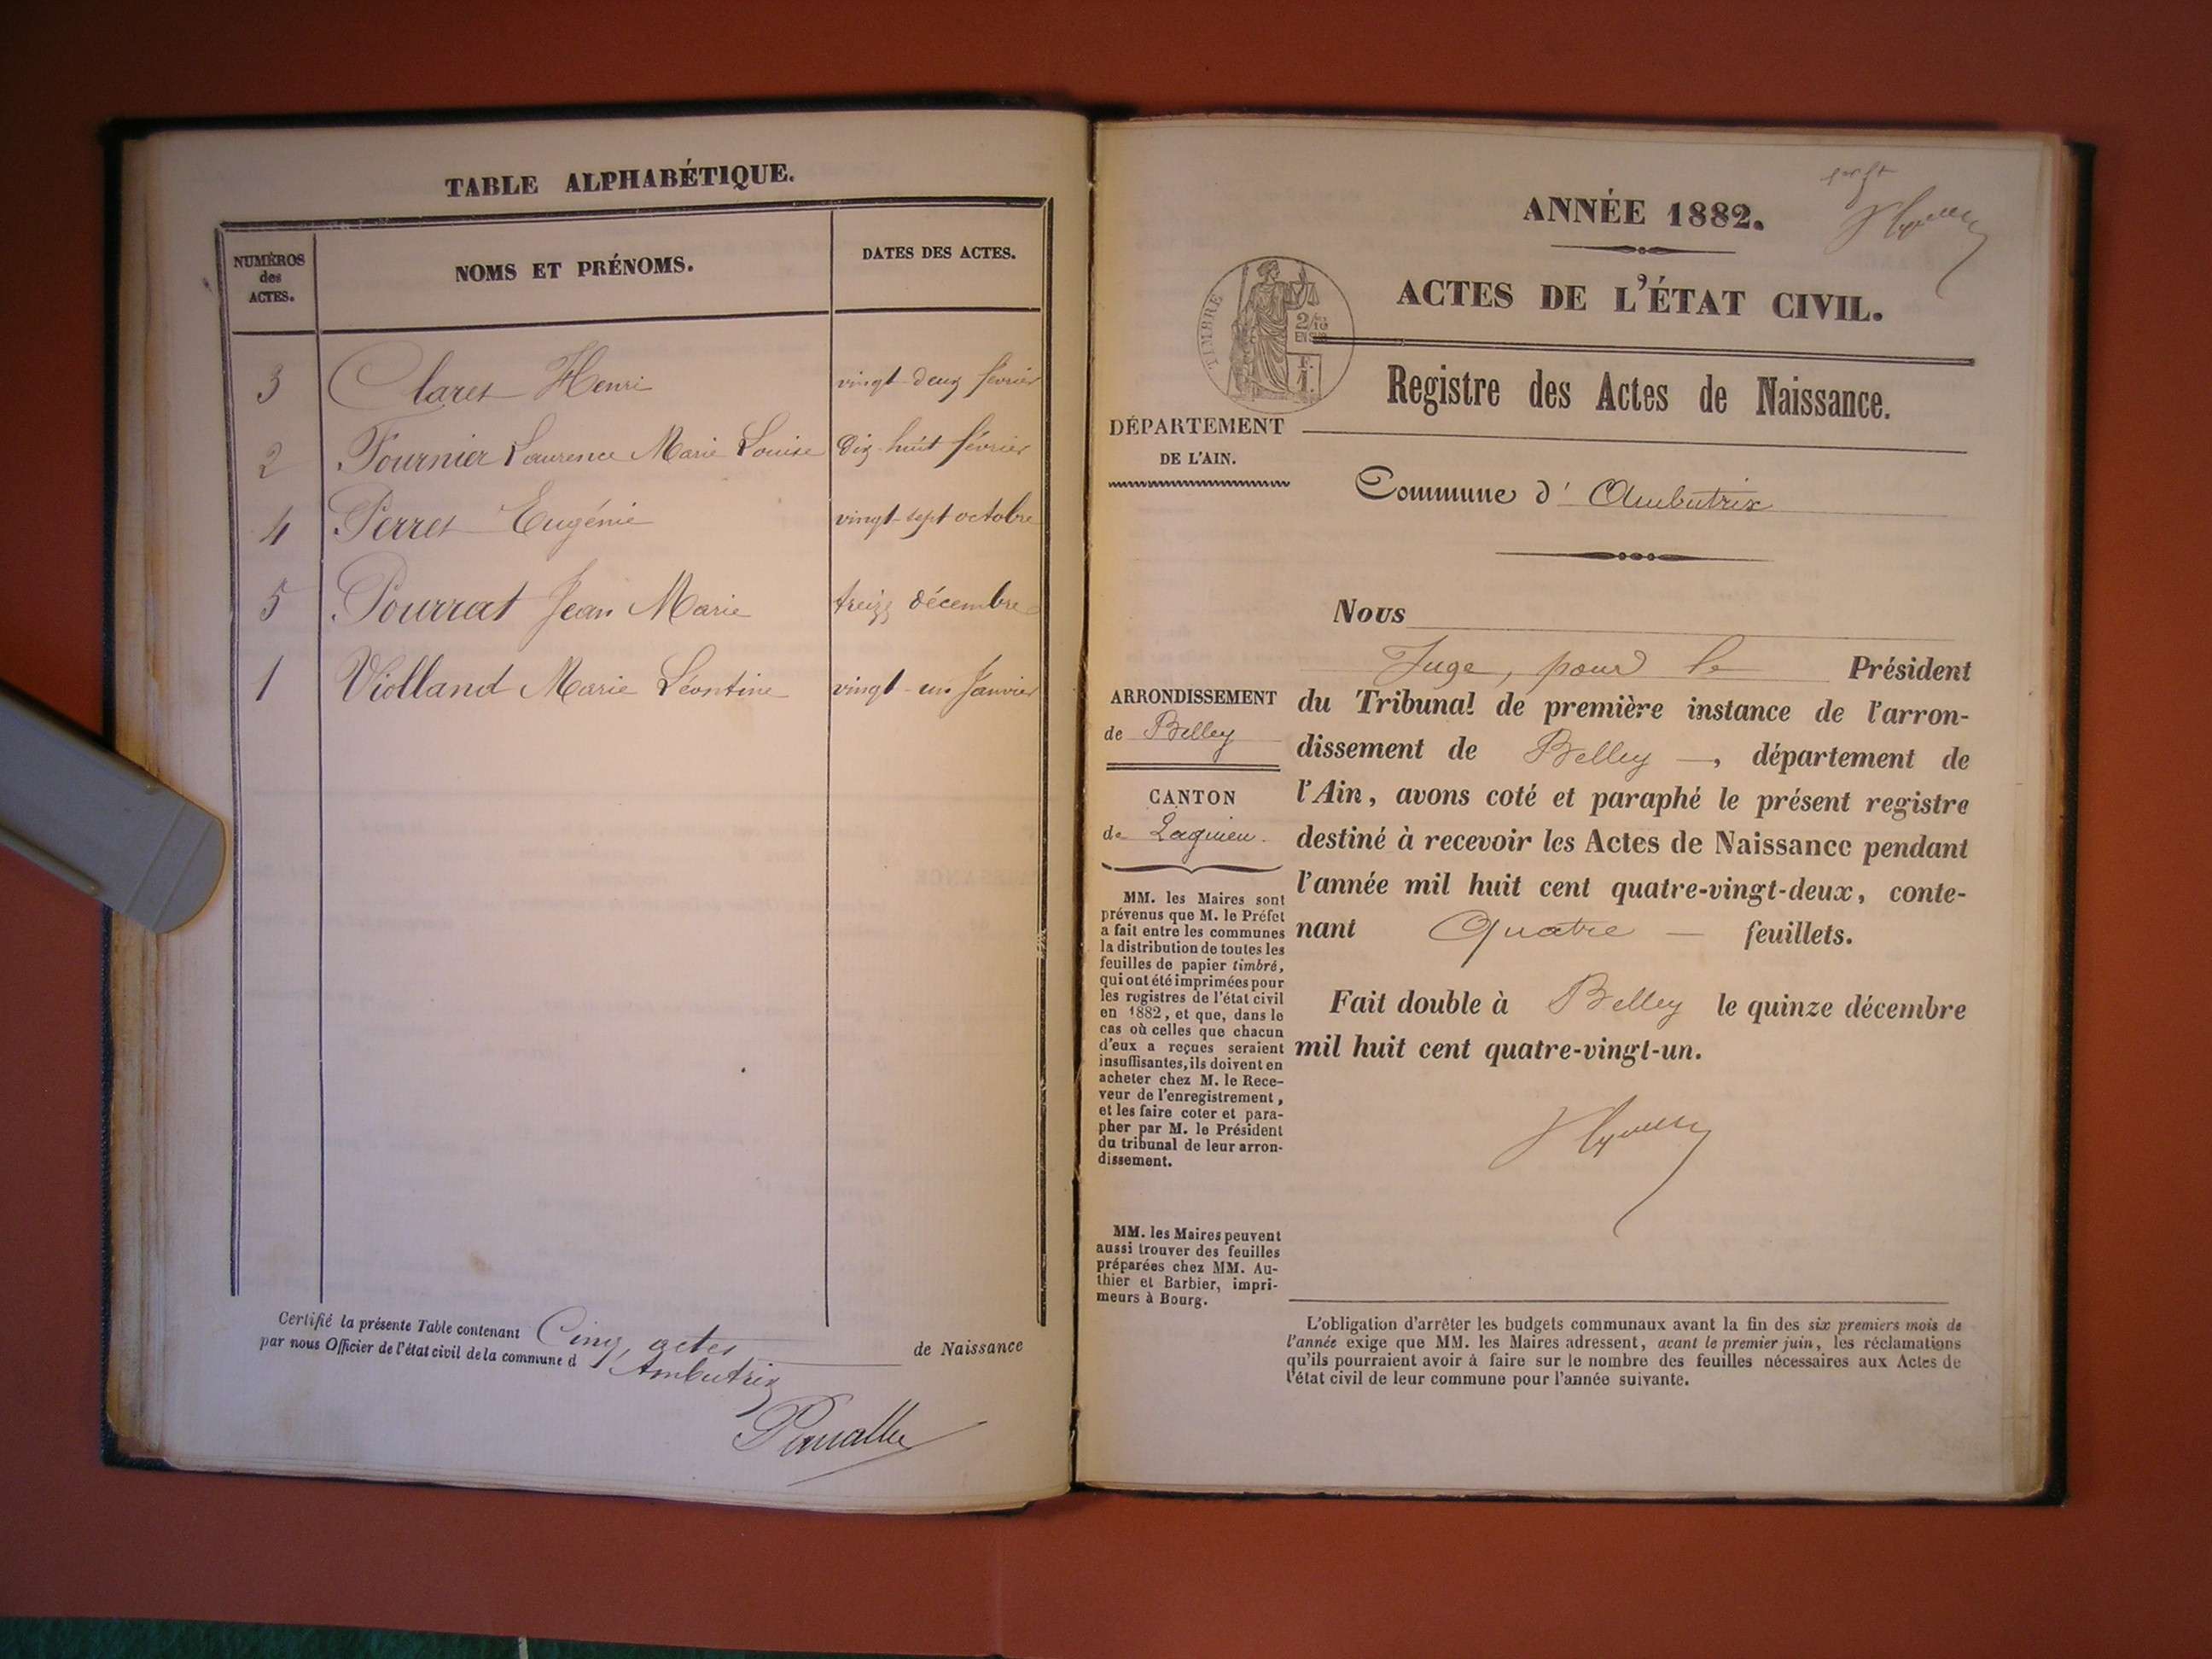 TABLE ALPHABÉTIQUE.
NUMÉROS
des
ACTES.
NOMS ET PRÉNOMS.
DATES DES ACTES.
3 Claret Henri vingt-deux février
2 Fournier Laurence Marie Louise dix-huit février
4 Perret Eugénie vingt-sept octobre
5 Pourrat Jean Marie treize décembre
1 Violland Marie Léontine vingt-un Janvier
Certifié la présente Table contenant Cinq actes de Naissance
par nous Officier de l'état civil de la commune d'Ambutrix
ANNÉE 1882.
ACTES DE L'ÉTAT CIVIL.
TIMBRE
2/10
EN SUS
F.
1.
Registre des Actes de Naissance.
DÉPARTEMENT
DE L'AIN.
Commune d'Ambutrix
ARRONDISSEMENT
de Belley
CANTON
de Lagnieu.
MM. les Maires sont
prévenus que M. le Préfet
a fait entre les communes
la distribution de toutes les
feuilles de papier timbré,
qui ont été imprimées pour
les registres de l'état civil
en 1882, et que, dans le
cas où celles que chacun
d'eux a reçues seraient
insuffisantes, ils doivent en
acheter chez M. le Rece-
veur de l'enregistrement,
et les faire coter et para-
pher par M. le Président
du tribunal de leur arron-
dissement.
MM. les Maires peuvent
aussi trouver des feuilles
préparées chez MM. Au-
thier et Barbier, impri-
meurs à Bourg.
Nous
Juge, pour le Président
du Tribunal de première instance de l'arron-
dissement de Belley —, département de
l'Ain, avons coté et paraphé le présent registre
destiné à recevoir les Actes de Naissance pendant
l'année mil huit cent quatre-vingt-deux, conte-
nant Quatre — feuillets.
Fait double à Belley le quinze décembre
mil huit cent quatre-vingt-un.
L'obligation d'arrêter les budgets communaux avant la fin des six premiers mois de
l'année exige que MM. les Maires adressent, avant le premier juin, les réclamations
qu'ils pourraient avoir à faire sur le nombre des feuilles nécessaires aux Actes de
l'état civil de leur commune pour l'année suivante.